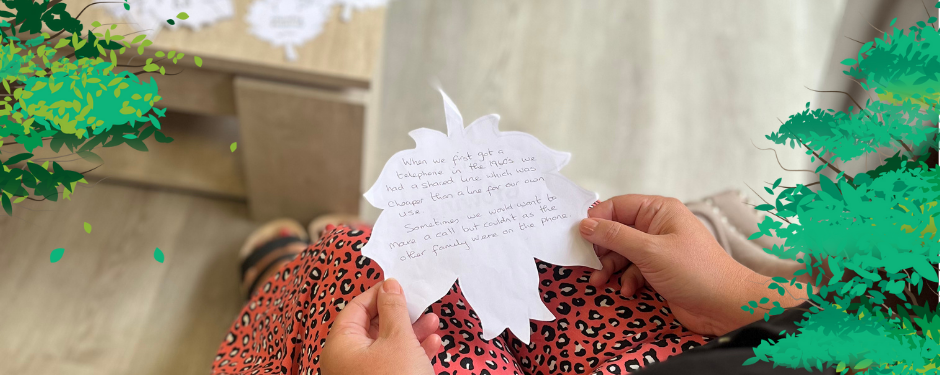 When we first got a
telephone in the 1960s we
had a shared line which was
cheaper than a line for our own
use.
Sometimes we would want to
make a call but couldnt as the
other family were on the phone.